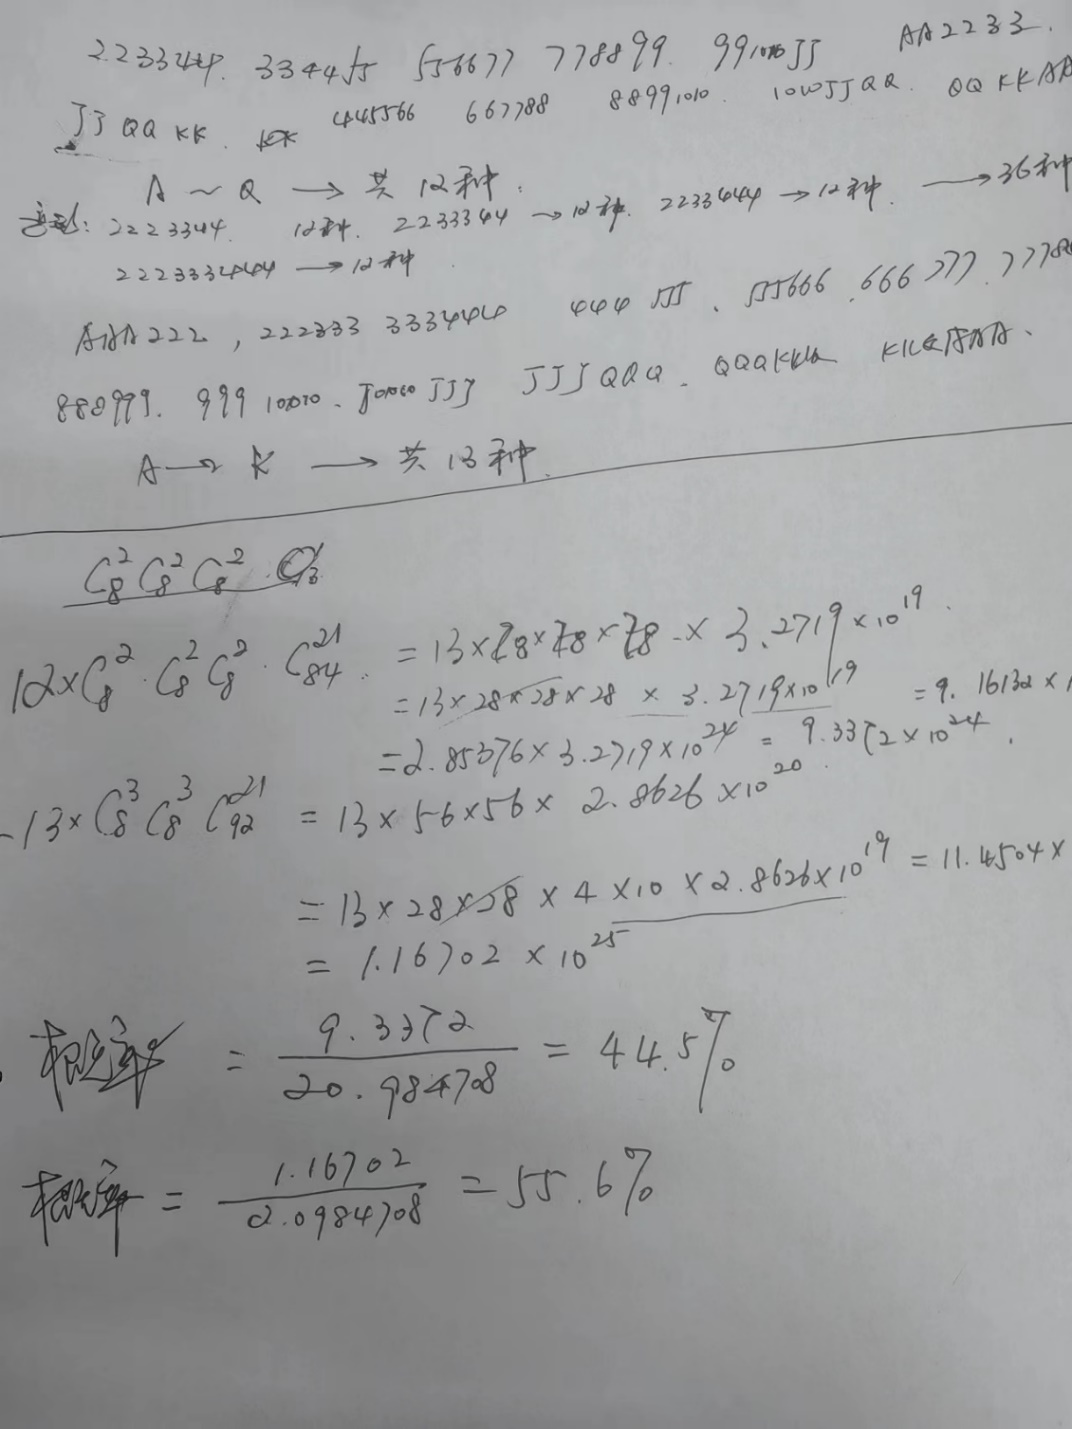 223344. 334455 556677 778899. 991010JJ AA2233.
JJQQKK. 445566 667788 88991010. 1010JJQQ. QQKKAA
A ~ Q → 共12种.
2223344. 12种. 2233344 → 12种. 2233444 → 12种. → 36种
222333444 → 12种
AAA222, 222333 333444 444555. 555666. 666777. 77788
888999. 999101010. 101010JJJ JJJQQQ. QQQKKK KKKAAA.
A → K → 共13种.
C₈² C₈² C₈² ·
12×C₈²·C₈²C₈²·C₈₄²¹ = 13×28×28×28 × 3.2719×10¹⁹.
= 13×28×28×28 × 3.2719×10¹⁹ = 9.16132×1
= 2.85376×3.2719×10²⁴ = 9.3372×10²⁴.
13×C₈³C₈³C₉₂²¹ = 13×56×56× 2.8626×10²⁰
= 13×28×28×4×10×2.8626×10¹⁹ = 11.4504×
= 1.16702×10²⁵
概率 = 9.3372/20.984708 = 44.5%
概率 = 1.16702/2.0984708 = 55.6%